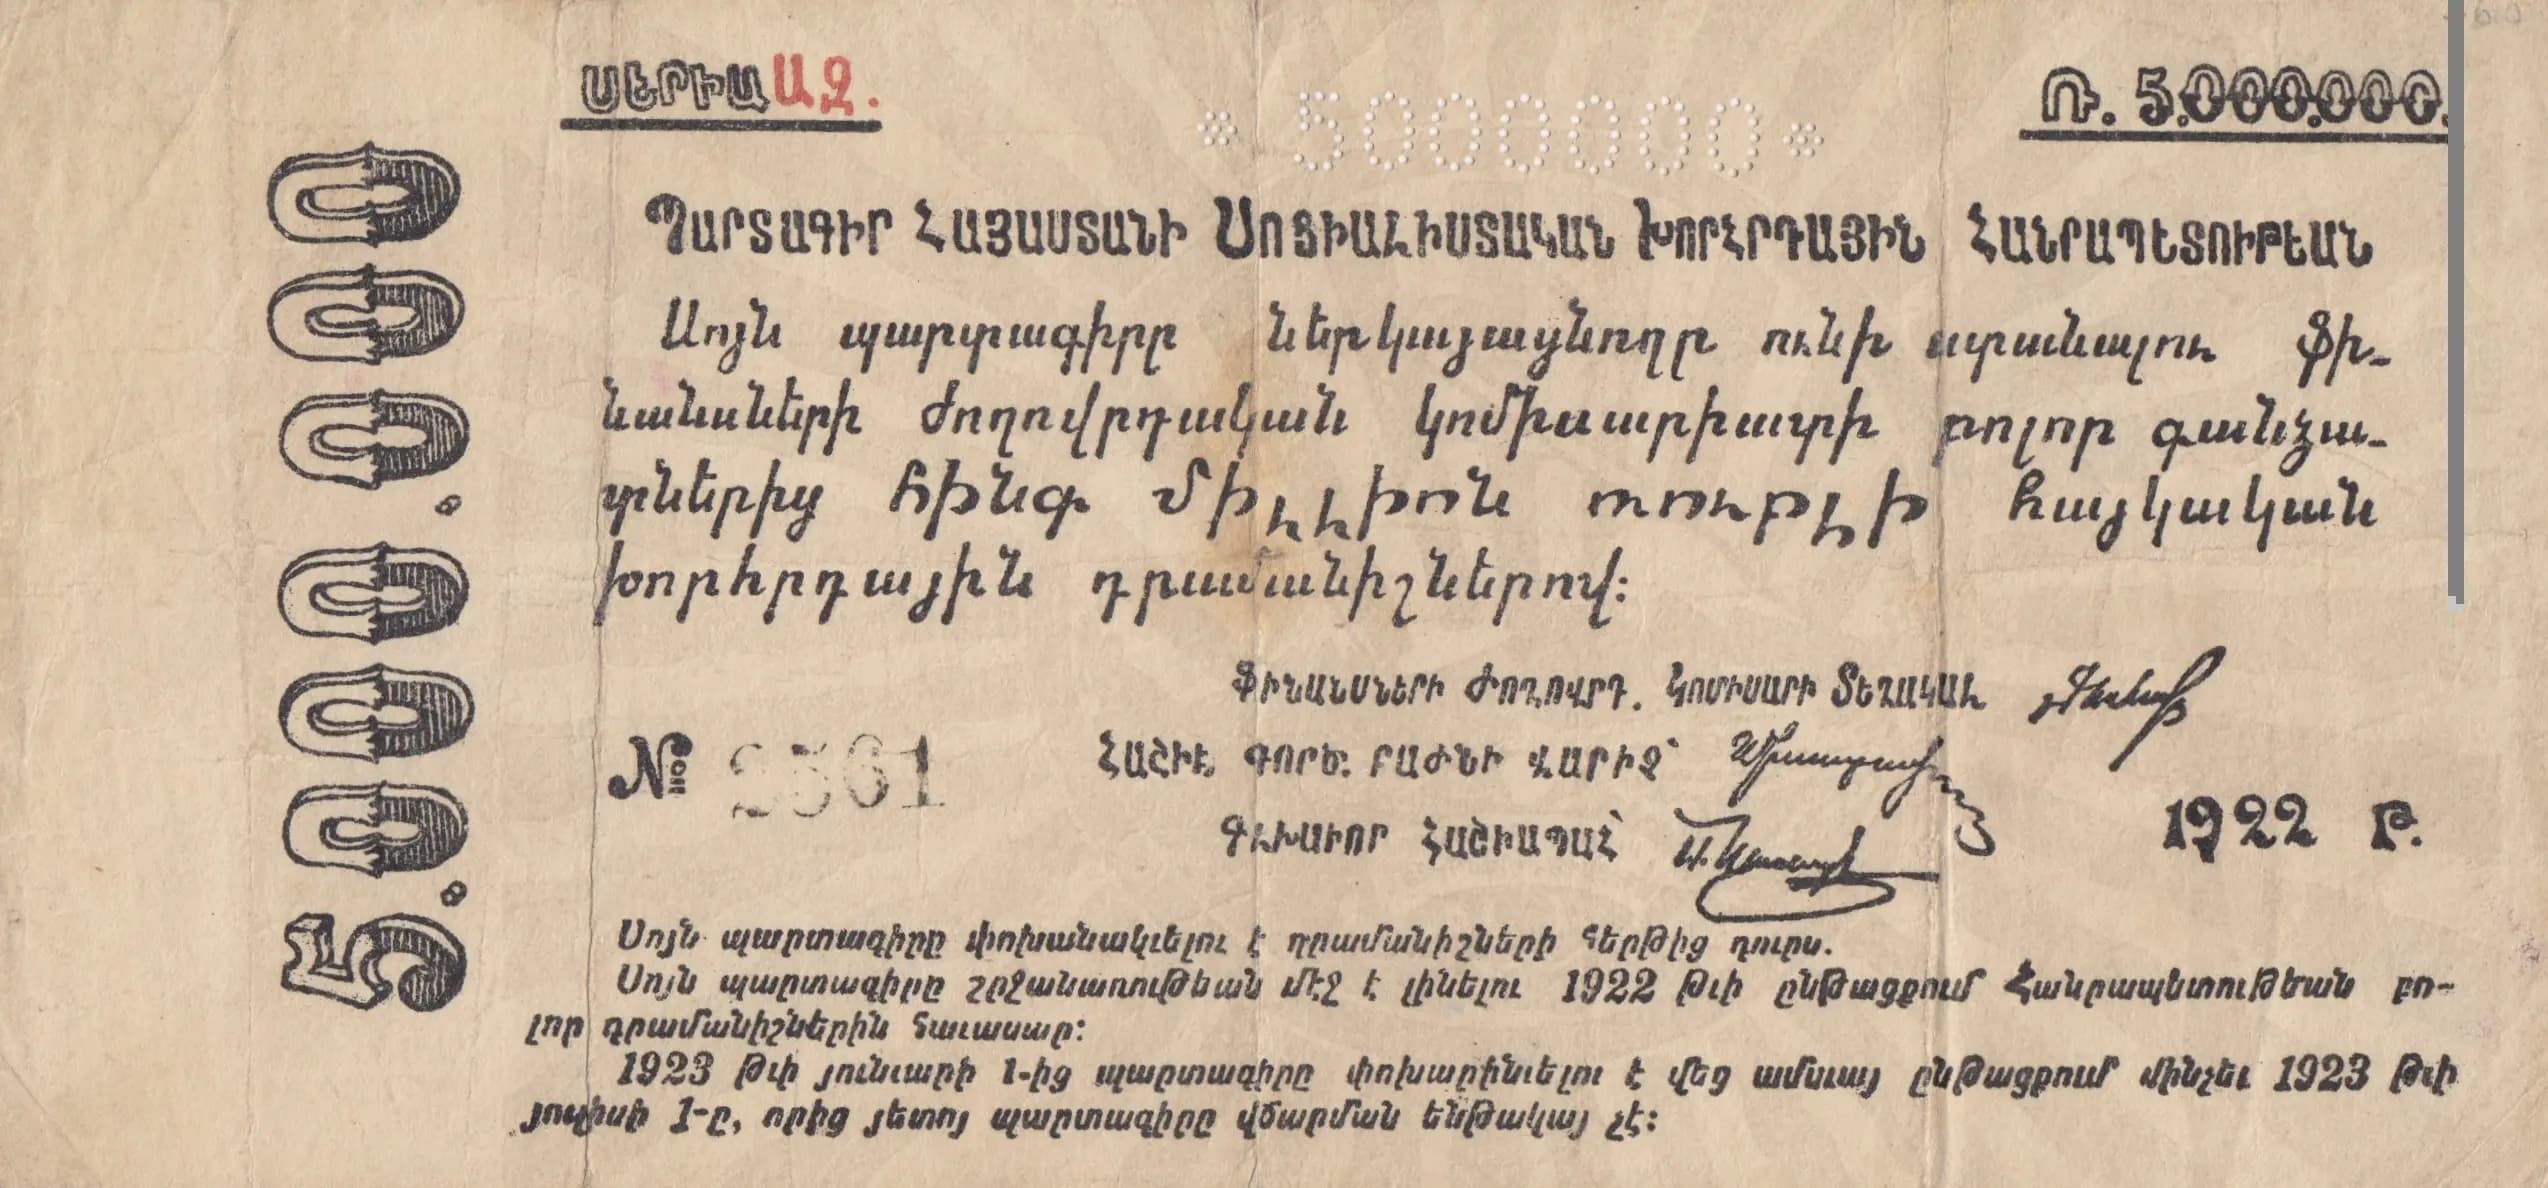 ՍԵՐԻԱ ԱԶ.
Ռ. 5.000.000.
* 5000000 *
5.000.000
ՊԱՐՏԱԳԻՐ ՀԱՅԱՍՏԱՆԻ ՍՈՑԻԱԼԻՍՏԱԿԱՆ ԽՈՐՀՐԴԱՅԻՆ ՀԱՆՐԱՊԵՏՈՒԹԵԱՆ
Սոյն պարտագիրը ներկայացնողը ունի ստանալու Ֆի-
նանսների Ժողովրդական կոմիսարիատի բոլոր գանձա-
տներից հինգ միլլիոն ռուբլի հայկական
խորհրդային դրամանիշներով:
ՖԻՆԱՆՍՆԵՐԻ ԺՈՂՈՎՐԴ. ԿՈՄԻՍԱՐԻ ՏԵՂԱԿԱԼ
ՀԱՇԻՒ. ԳՈՐԾ. ԲԱԺՆԻ ՎԱՐԻՉ՝
№ 2561
ԳԼԽԱՒՈՐ ՀԱՇՒԱՊԱՀ՝
1922 Թ.
Սոյն պարտագիրը փոխանակւելու է դրամանիշների հերթից դուրս.
Սոյն պարտագիրը շրջանառութեան մէջ է լինելու 1922 թւի ընթացքում Հանրապետութեան բո-
լոր դրամանիշներին հաւասար:
1923 թւի յունւարի 1-ից պարտագիրը փոխարինւելու է վեց ամսւայ ընթացքում մինչեւ 1923 թւի
յուլիսի 1-ը, որից յետոյ պարտագիրը վճարման ենթակայ չէ: